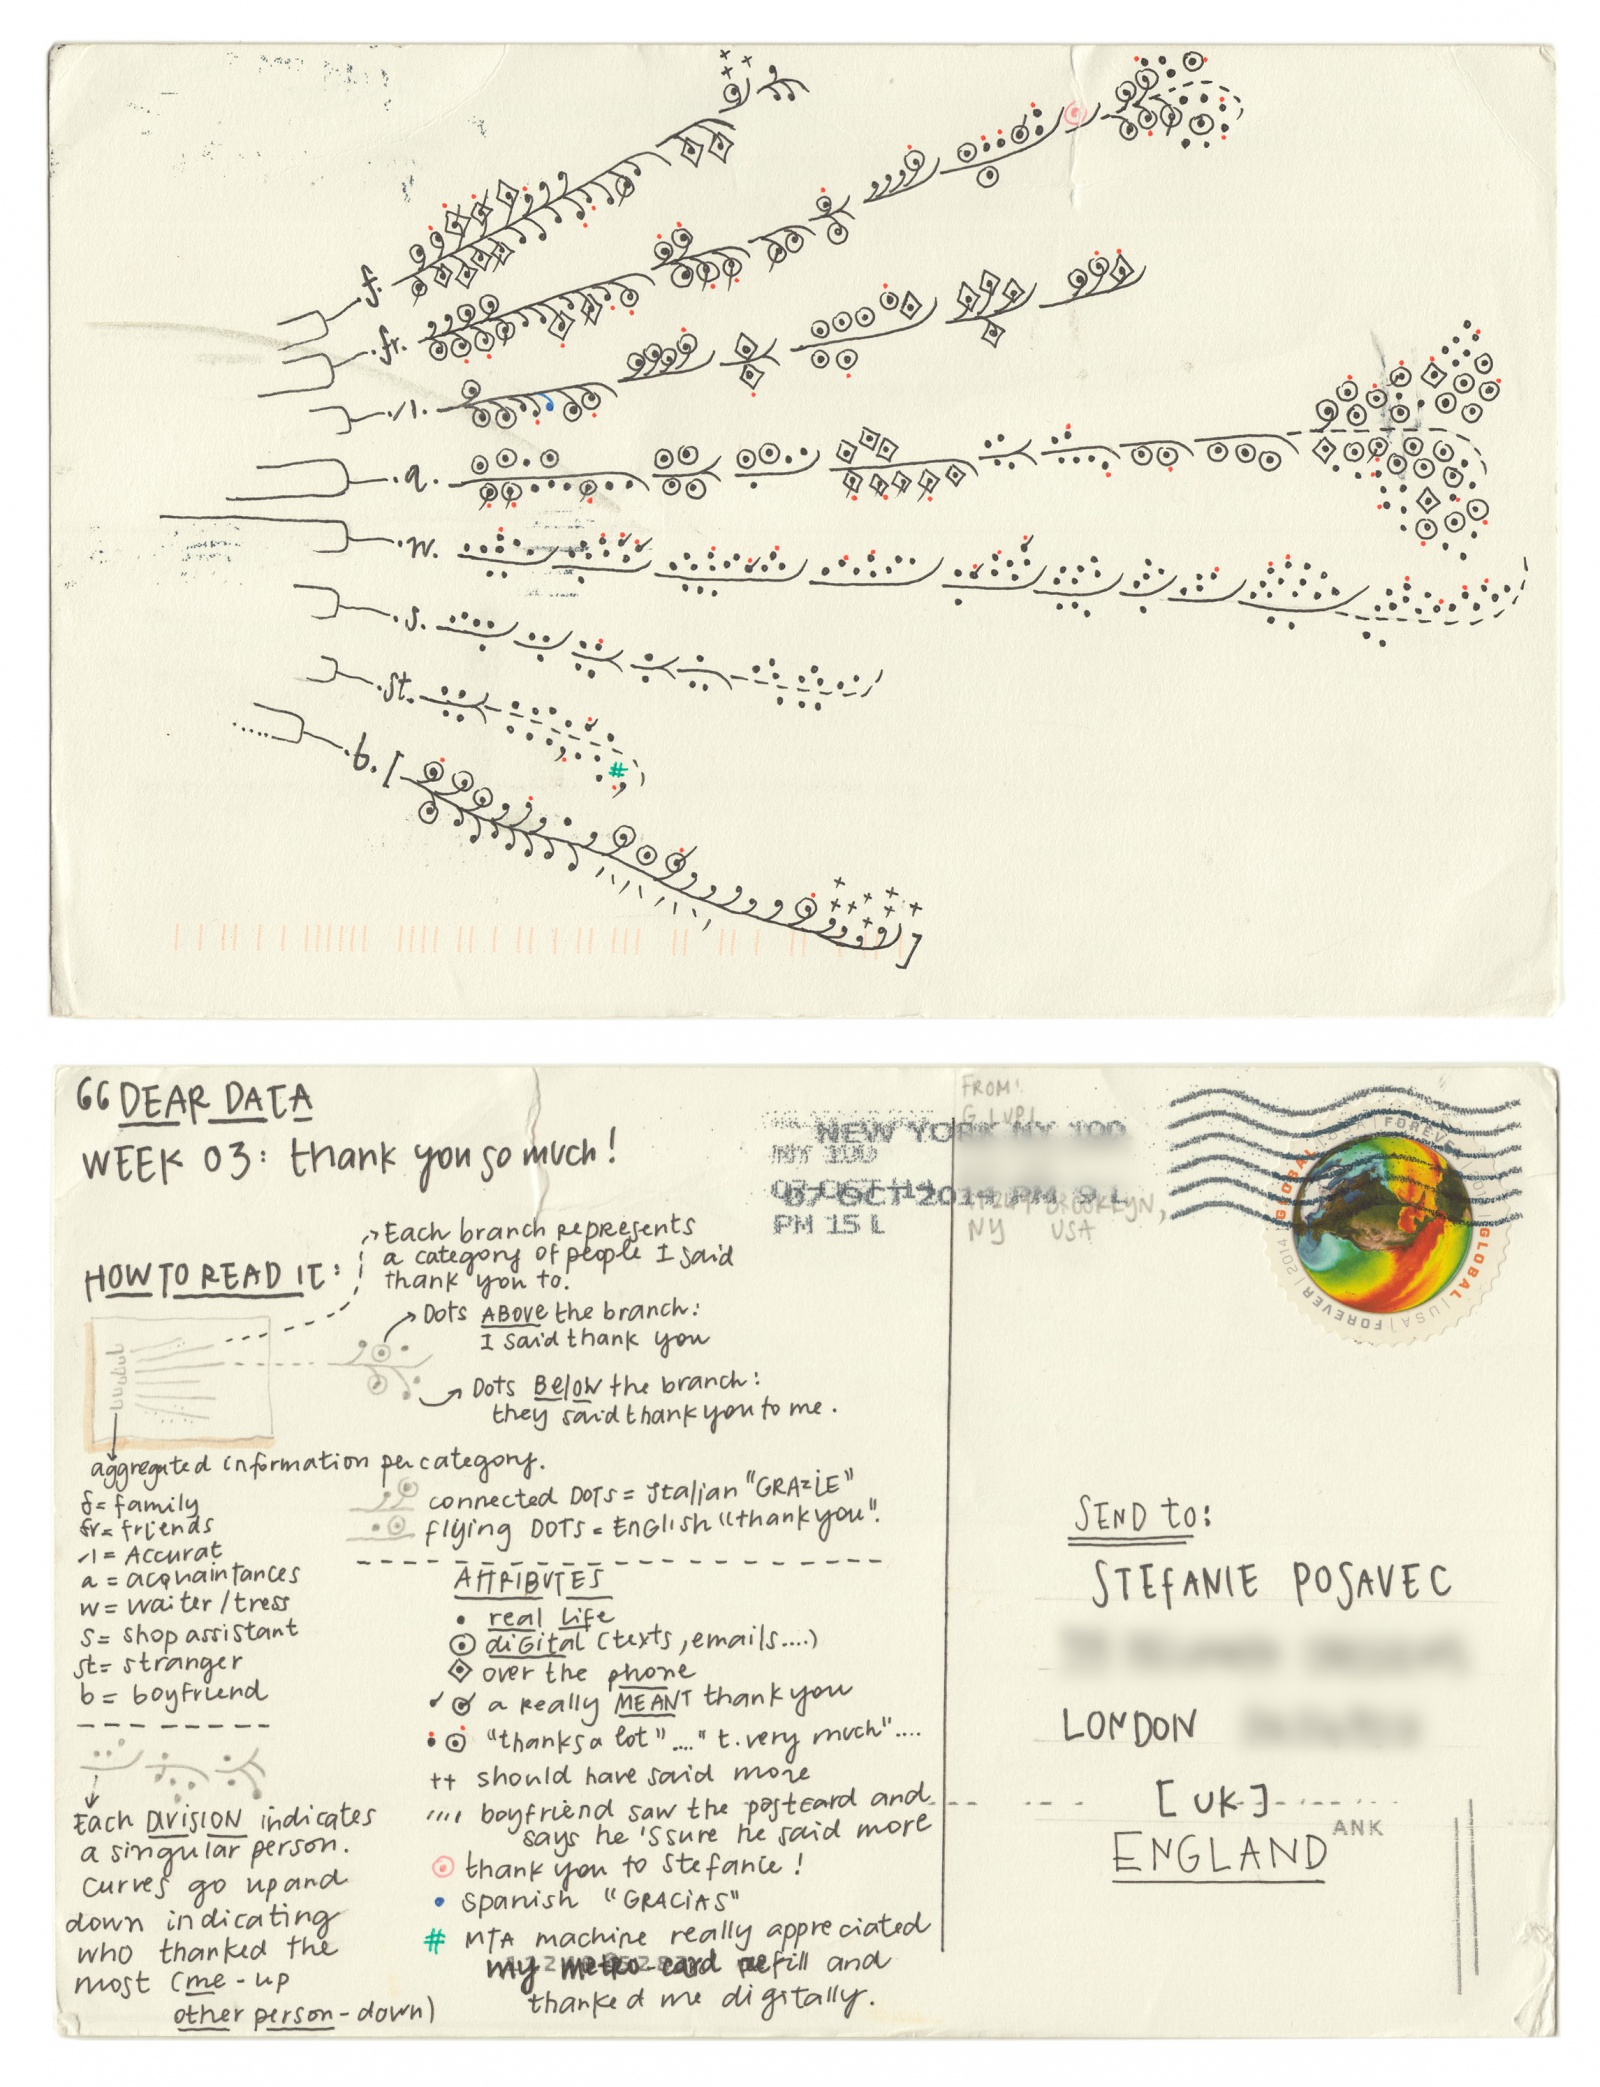 f.
.fr.
.·/1.
.a.
.w.
.s.
.st.
#
.b. [
]
GG DEAR DATA
WEEK 03: thank you so much!
HOW TO READ IT:
Each branch represents
a category of people I said
thank you to.
Dots ABOVE the branch:
I said thank you
Dots BELOW the branch:
they said thank you to me.
aggregated information per category.
f= family
fr= friends
·/1= Accurat
a = acquaintances
w= waiter/tress
s= shop assistant
st= stranger
b = boyfriend
Each DIVISION indicates
a singular person.
curves go up and
down indicating
who thanked the
most (me-up
other person-down)
connected DOTS = Italian "GRAZIE"
flying DOTS = ENGlish "thank you".
ATTRIBUTES
real life
diGital (texts, emails....)
over the phone
a really MEANT thank you
"thanks a lot"...."t. very much"....
++ should have said more
boyfriend saw the postcard and
says he's sure he said more
thank you to Stefanie!
spanish "GRACIAS"
# MTA machine really appreciated
my metro-card refill and
thanked me digitally.
FROM:
NEW YORK NY 100
NY 100
07 OCT 2014 PM 9 L
PM 15 L
BROOKLYN,
NY USA
GLOBAL | USA | FOREVER | 2014
GLOBAL | USA | FOREVER | 2014
SEND to:
STEfANIE POSAVEC
LONDON
[UK]
ANK
ENGLAND